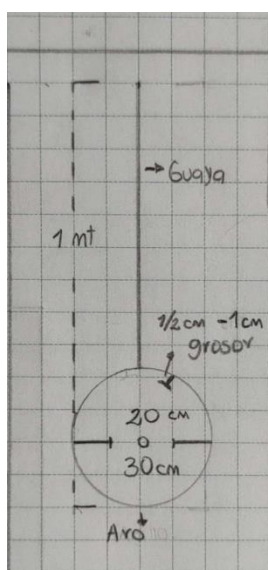 → Guaya
1 mt
1/2 cm - 1 cm
grosor
20 cm
o
30 cm
Aro